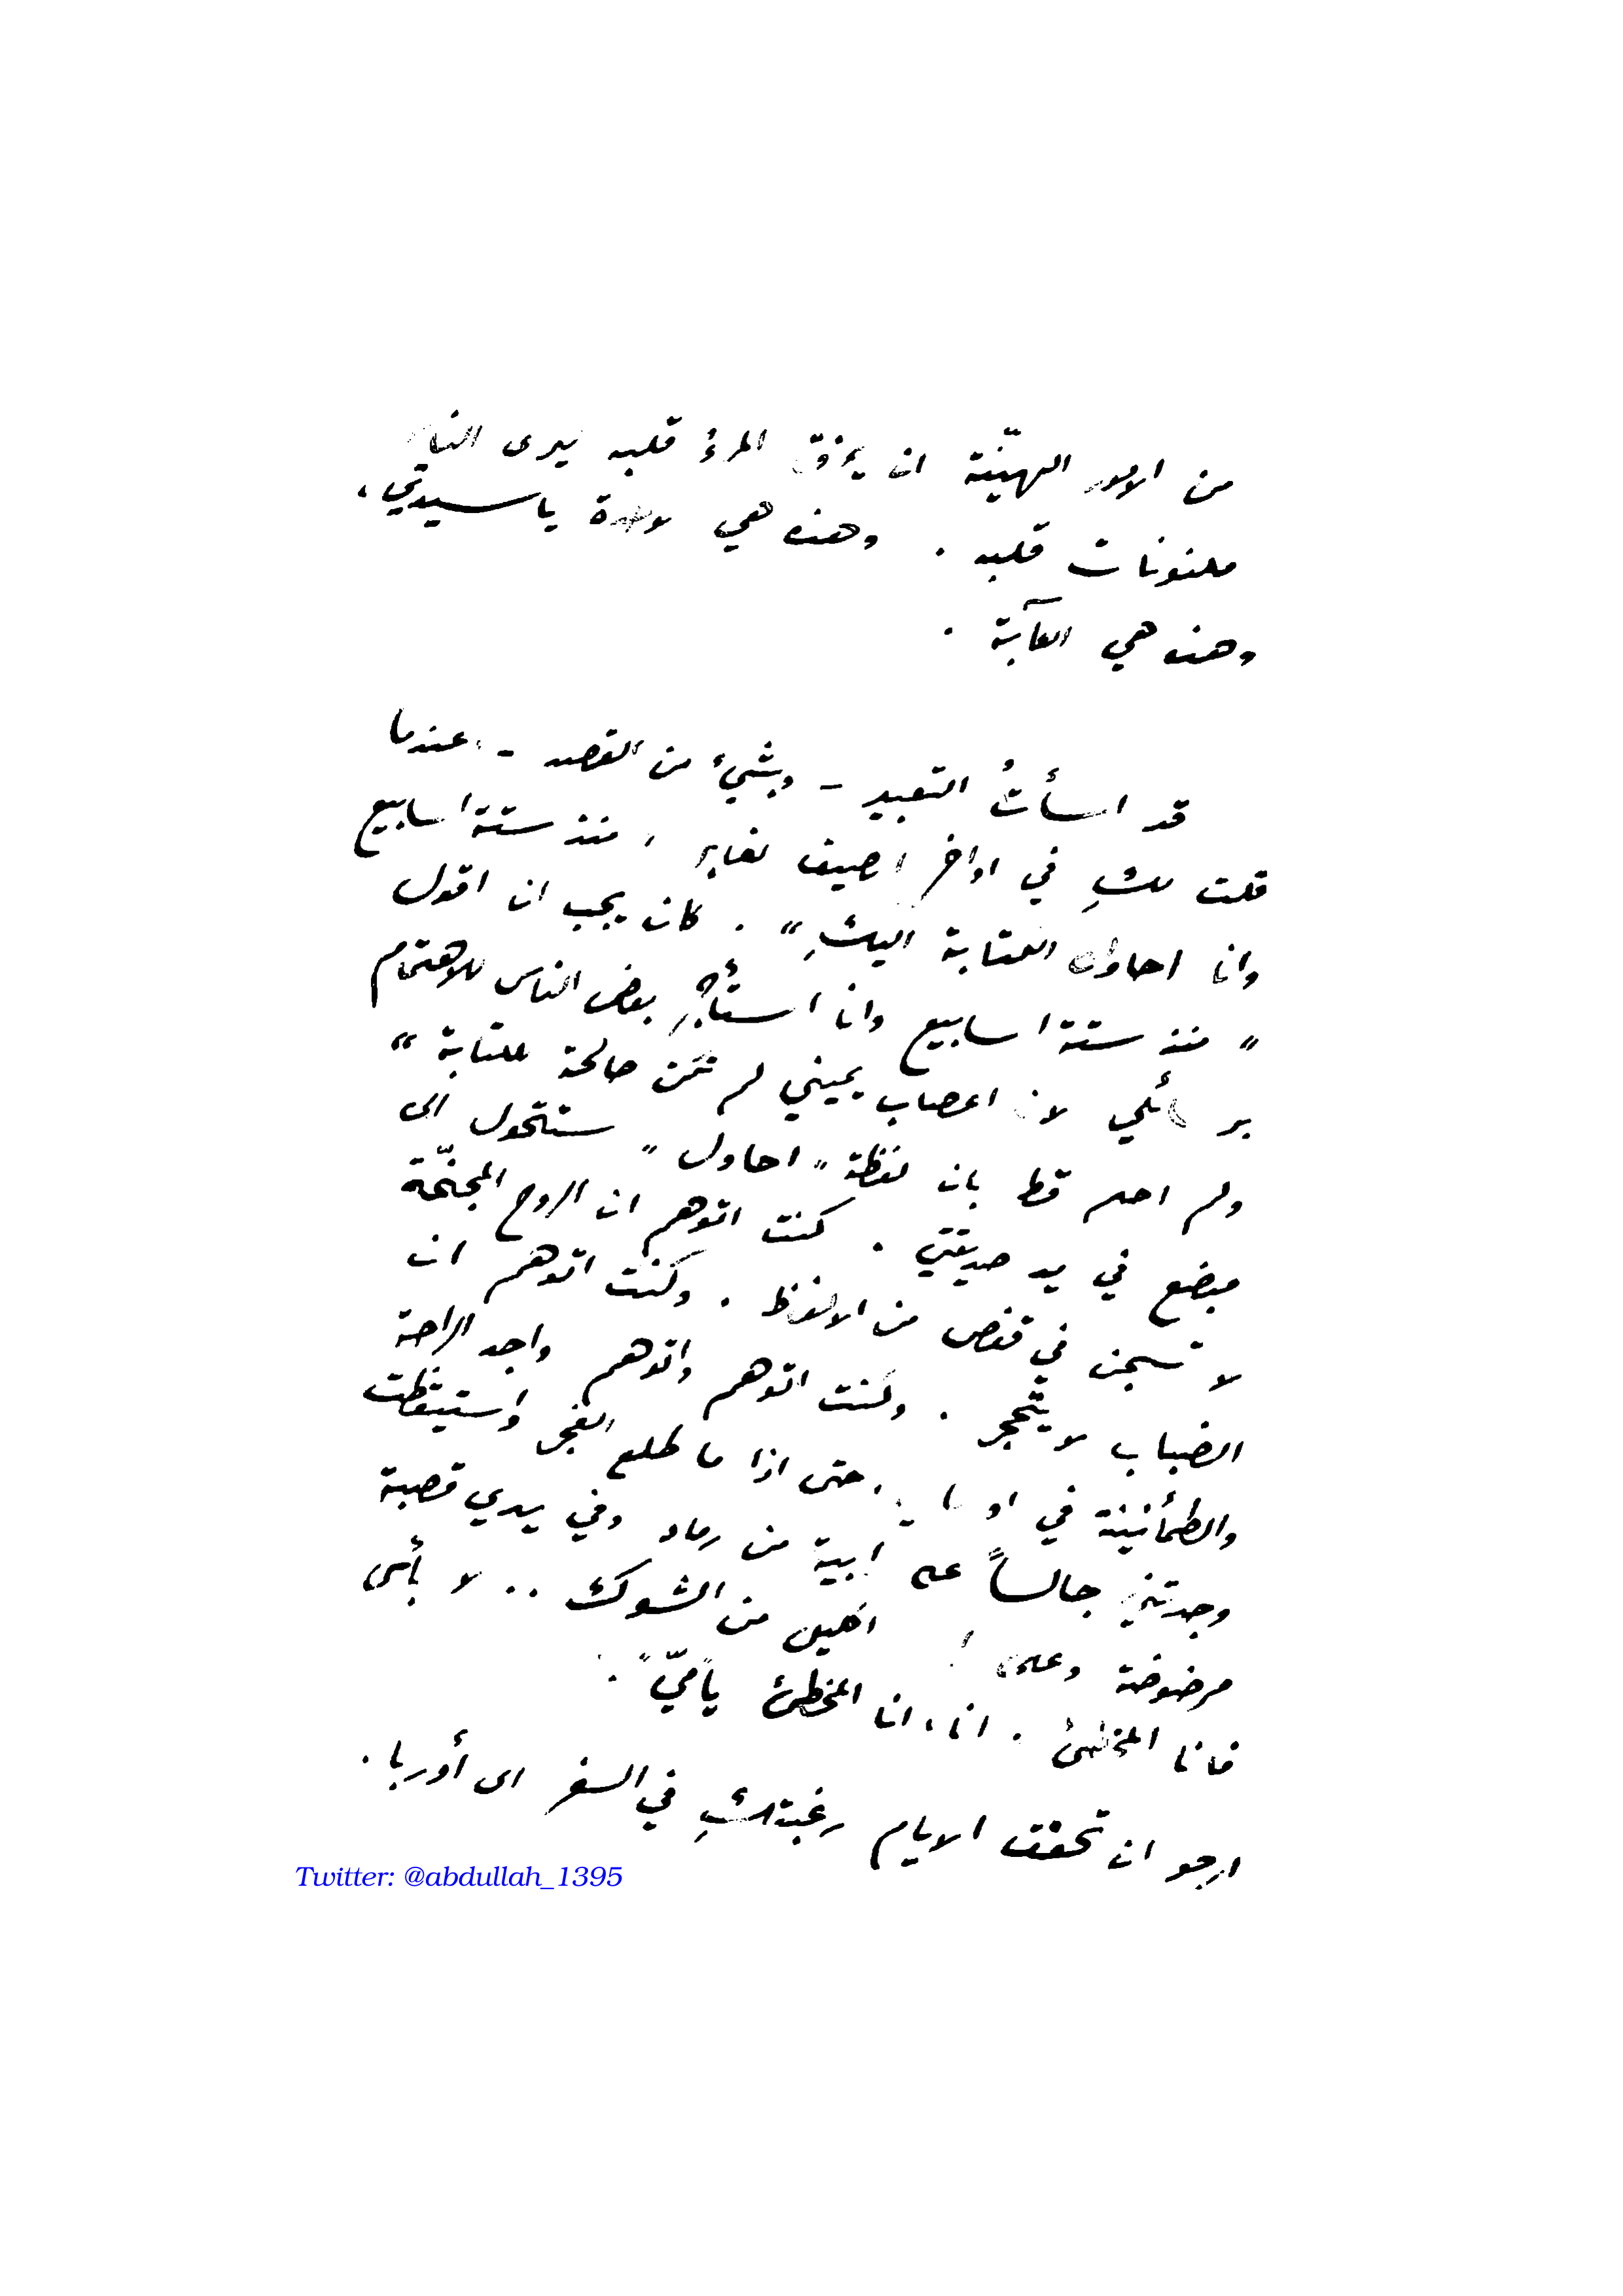 من الامور الهيّنة ان يمزّق المرءُ قلبه ليرى الناس
مكنونات قلبه . وهذه هي يا سيدتي ،
وهذه هي الكآبة .
قد اسأتُ التعبير - وبشيءٍ من القصد - عندما
قلت لكِ في اواخر الصيف الغابر ، منذ ستة اسابيع
وانا احاول الكتابة اليكِ " . كان يجب ان اقول
" منذ ستة اسابيع وانا استأجر بعض الناس للاهتمام
برسائلي لان اعصاب يميني لم تكن صالحة للكتابة "
ولم احلم قط بان لفظة " احاول " ستتحول الى
مبضع في يد صديقتي . كنت اتوهم ان الروح المجنّحة
لا تسجن في قفص من الالفاظ . وكنت اتوهم ان
الضباب لا يتحجر . وكنت اتوهم واتوهم واجد الراحة
والطمأنينة في ، حتى اذا ما طلع الفجر واستيقظت
وجدتني جالساً على رابية من رماد وفي يدي قصبة
مرضوضة وعلى اكليل من الشوك .. لا بأس
فانا المخطئ . انا ، انا المخطئ يا ميّ .
ارجو ان تحقق الايام رغبتكِ في السفر الى أوربا .
Twitter: @abdullah_1395